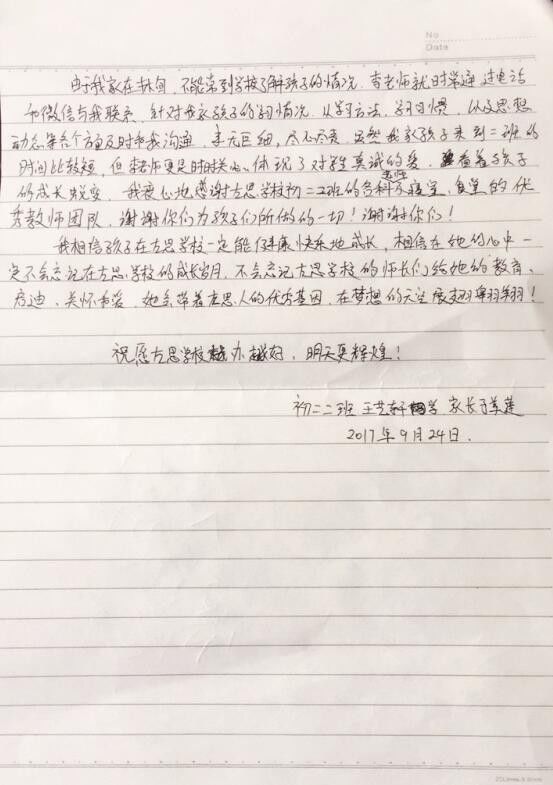 No
Date
由于我家在林甸，不能常到学校了解孩子的情况，李老师就时常通过电话
和微信与我联系，针对我家孩子的学习情况，从学习方法，学习习惯，以及思想
动态等各个方面及时和我沟通，事无巨细，尽心尽责，虽然我家孩子来到二班的
时间比较短，但李老师更是时时关心，体现了对学生真诚的爱，看着孩子
的成长蜕变，我衷心地感谢左思学校初二二班的各科老师及寝室，食堂的优
秀教师团队，谢谢你们为孩子们所做的一切！谢谢你们！
我相信孩子在左思学校一定能健康快乐地成长，相信在她的心中一
定不会忘记在左思学校的成长岁月，不会忘记左思学校的师长们给她的教育、
启迪、关怀和爱，她会带着左思人的优秀基因，在梦想的天空展翅翱翔！
祝愿左思学校越办越好，明天更辉煌！
初二二班 王艺轩同学 家长于美莲
2017年9月24日.